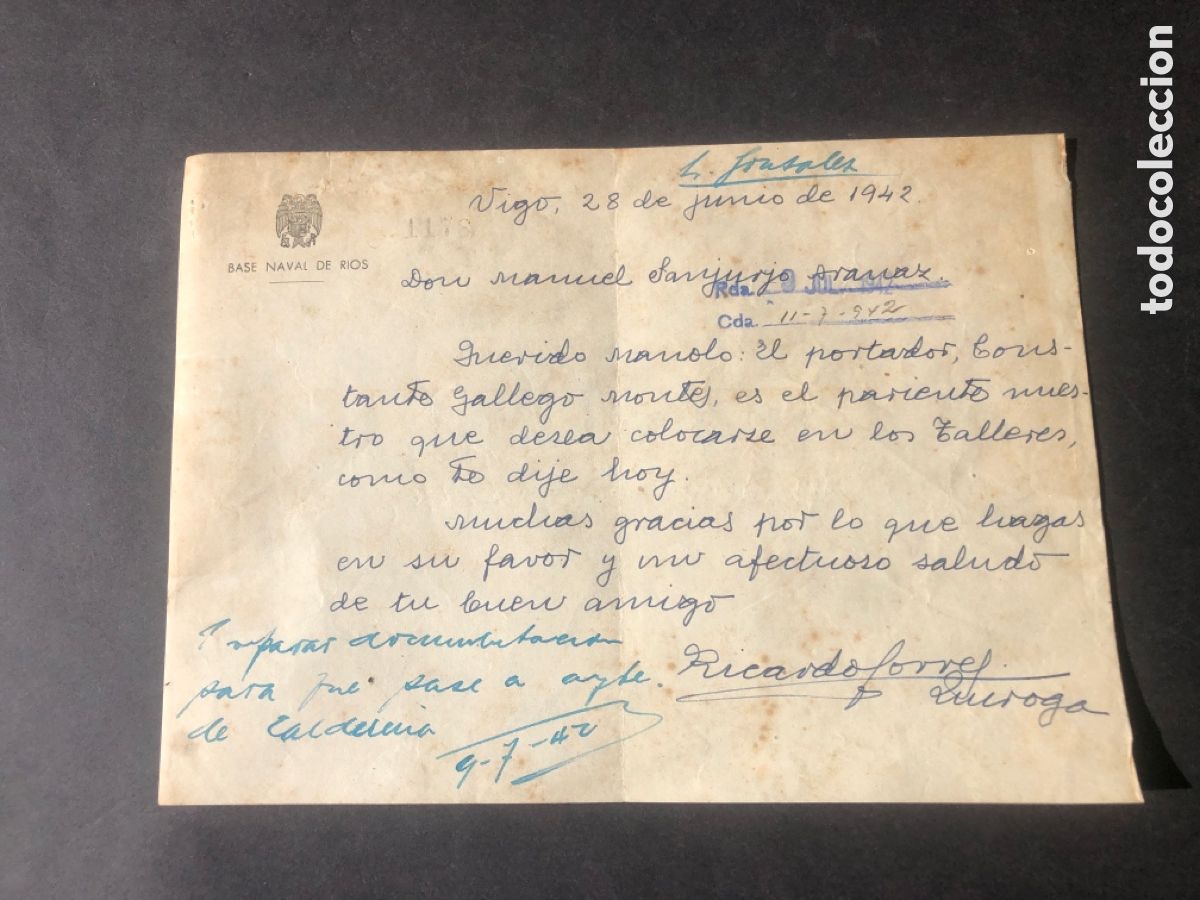 S. Gonzalez
Vigo, 28 de junio de 1942.
1178
BASE NAVAL DE RIOS
Don Manuel Sanjurjo Aranaz.
Rda. 9 JUL. 1942
Cda. 11-7-942
Querido Manolo: El portador, Cons-
tante Gallego Montes, es el pariente nues-
tro que desea colocarse en los Talleres,
como te dije hoy.
Muchas gracias por lo que hagas
en su favor y un afectuoso saludo
de tu buen amigo
Ricardo Torres
Quiroga
Preparar documentacion
para que pase a ayte.
de Caldereria
9-7-42
todocoleccion